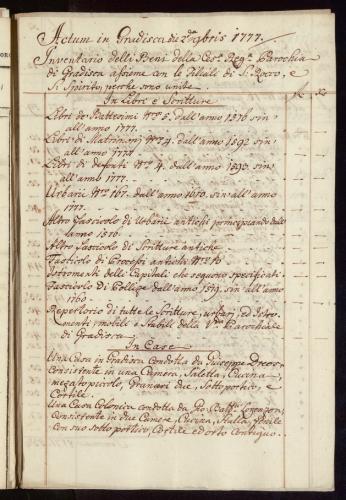 Actum in Gradisca di 2 Xbris 1777.
Inventario delli Beni della Ces. Reg. Parochia
di Gradisca assieme con le Filiali di S. Rocco, e
S. Spirito, perche sono unite.
In Libri e Scritture
Libri de Battesimi N.° 5. dall'anno 1576 sin
all'anno 1777.
Libri di Matrimonj N.° 4. dall'anno 1592 sin
all'anno 1777.
Libri di defonti N.° 4. dall'anno 1590. sin
all'anno 1777.
Urbarii N.° 167. dall'anno 1610. sin all'anno
1777.
Altro Fascicolo di Urbarii antichi principiando dall'
anno 1516.
Altro Fascicolo di Scritture antiche
Fasticlo di Processi antichi N.° 10
Istromenti delli Capitali che seguono specificati
Fascicolo di Collize dall'anno 1579. sin all'anno
1760.
Repertorio di tutte le Scritture, urbarj, ed Istro-
menti, mobili e Stabili della Parochiale
di Gradisca
In Case
Una Casa in Gradisca condotta da Giuseppe
consistente in una Camera, Saletta, Cucina
mezato picolo, Granari due, Sottoportico, e
Cortile.
Una Casa Colonica condotta da Gio. Batt. Lorenzon,
Consistente in due Camere, Cucina, Stalla, fenile
con suo sottoportico, Cortile ed orto contiguo.